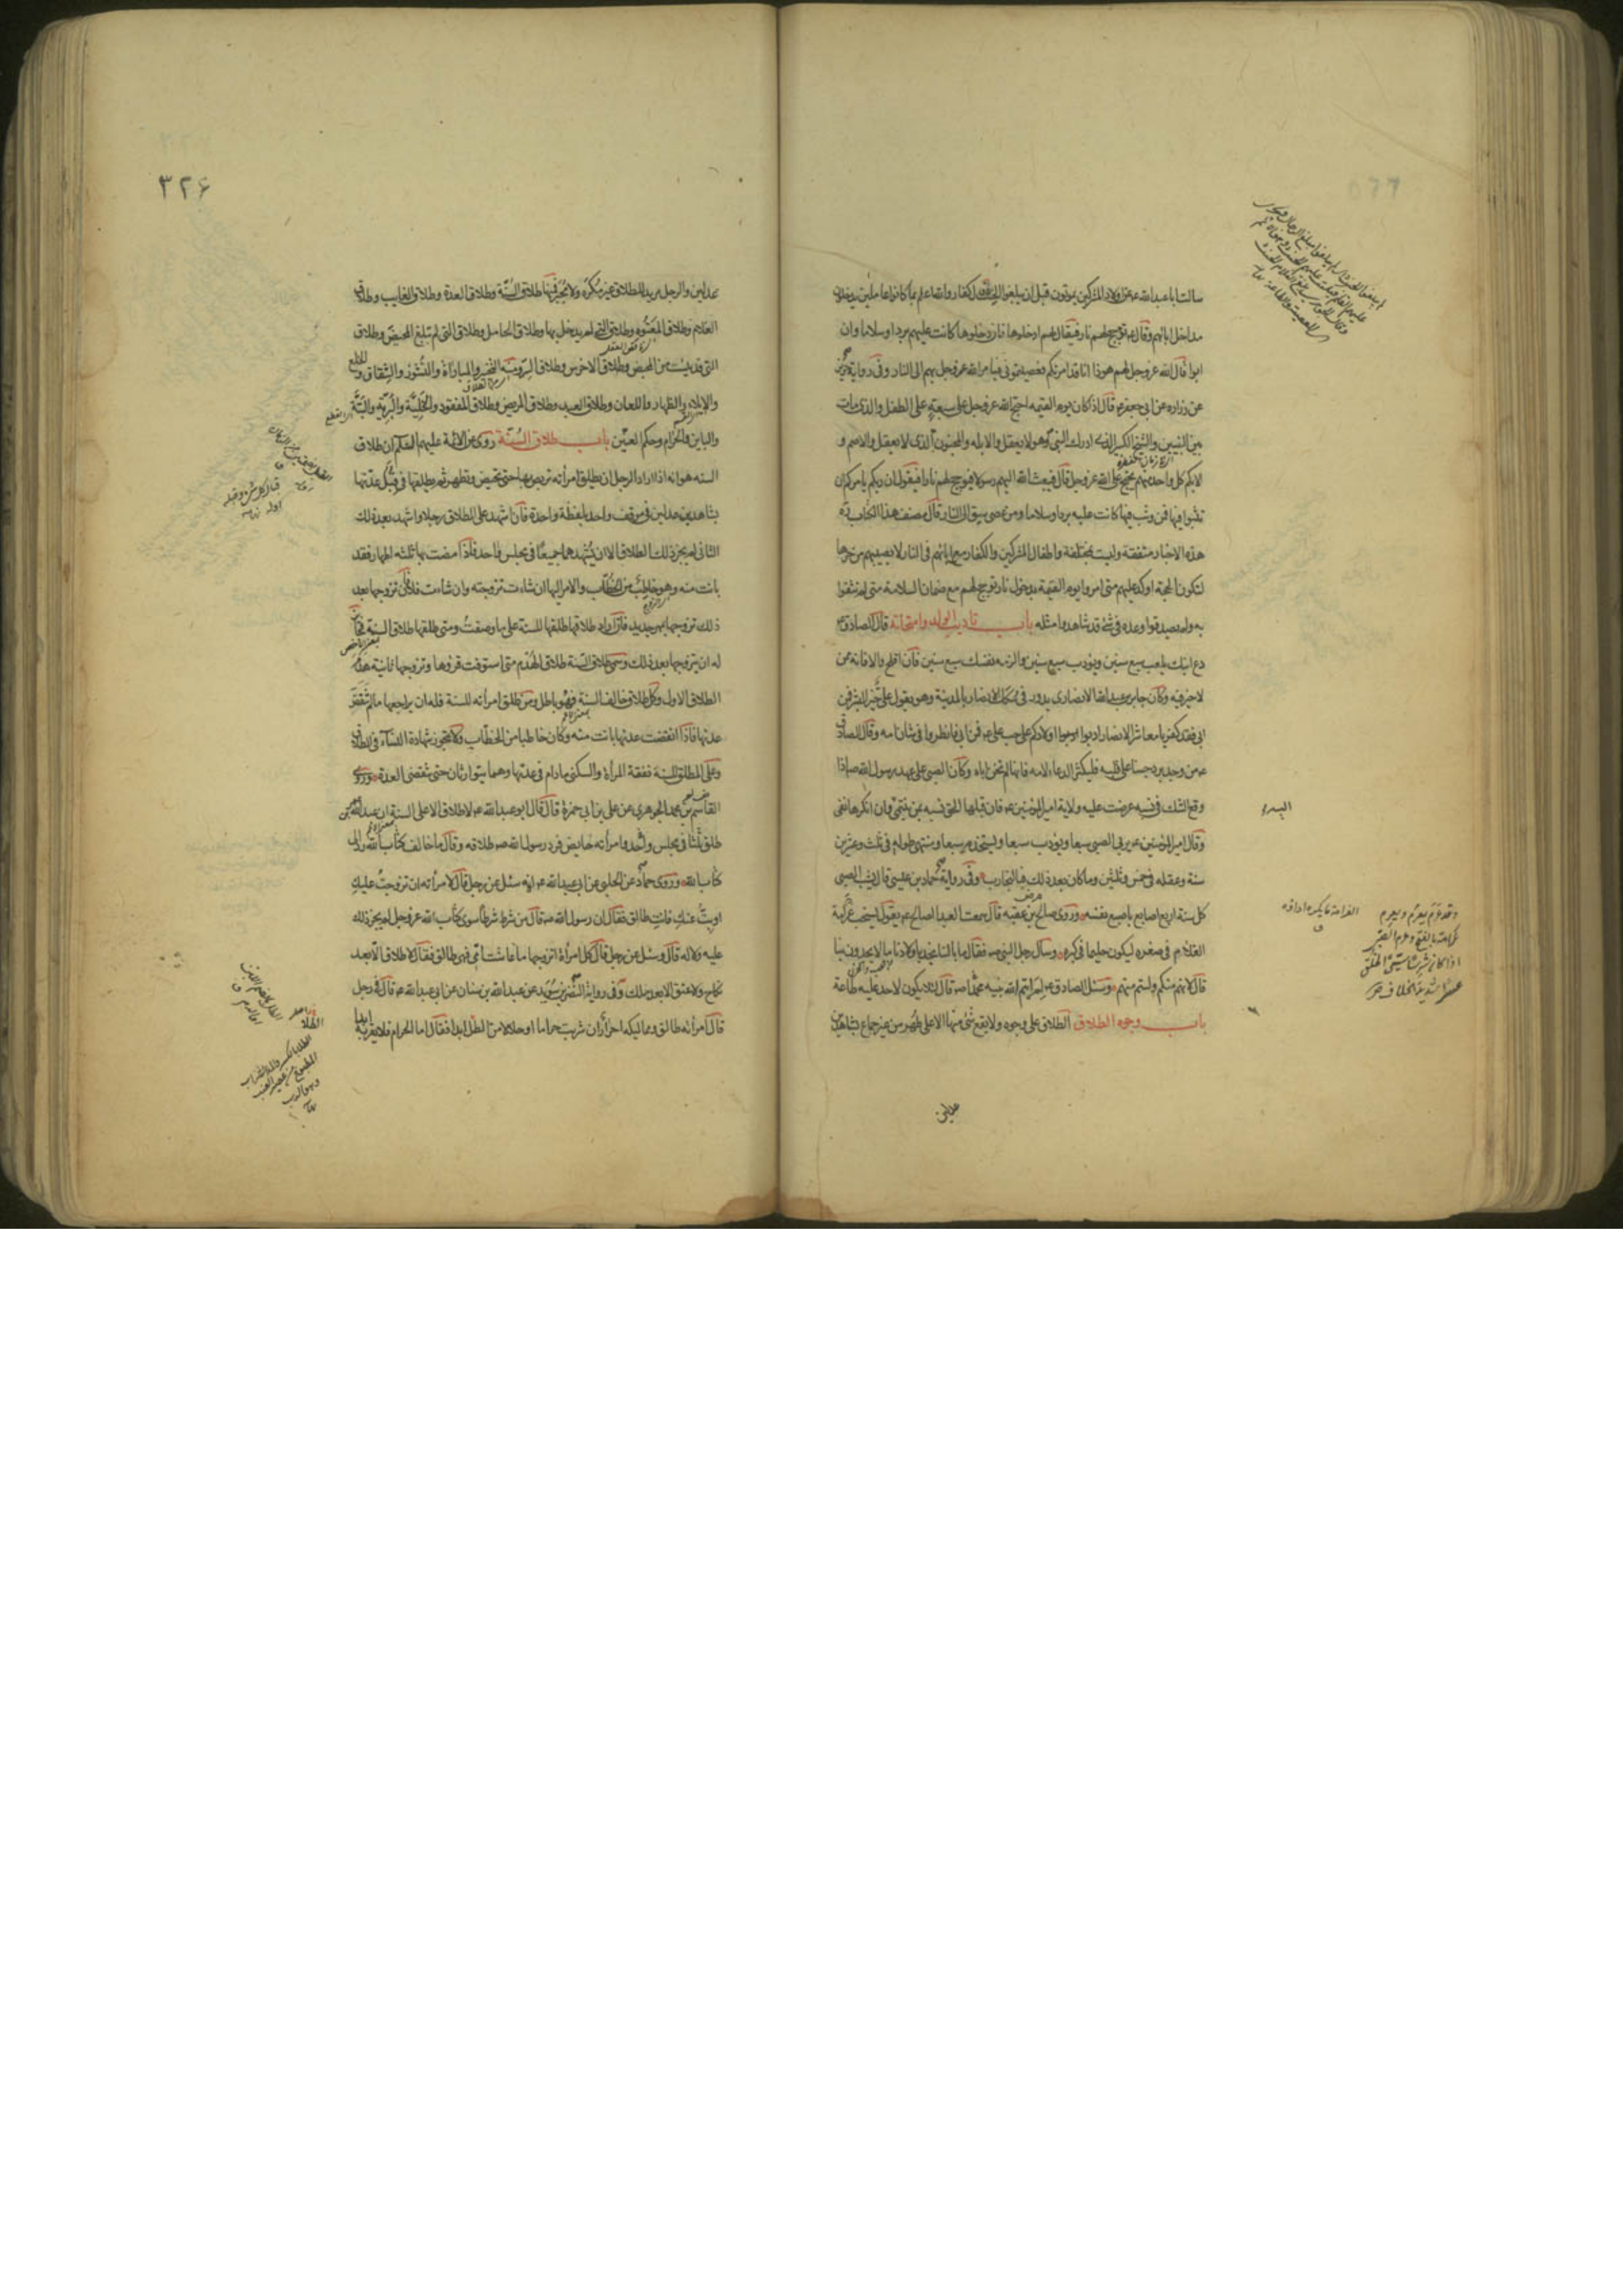 سالت ابا عبد الله ع عن اولاد المشركين يموتون قبل ان يبلغوا الحنث قال كفار والله اعلم بما كانوا عاملين يدخلون
مداخل ابائهم وقال ع تؤجج لهم نار فيقال لهم ادخلوها فان دخلوها كانت عليهم بردا وسلاما وان
ابوا قال الله عز وجل لهم هوذا انا قد امرتكم فعصيتموني فيامر الله عز وجل بهم الى النار وفي رواية حريز
عن زرارة عن ابي جعفر ع قال اذا كان يوم القيمة احتج الله عز وجل على سبعة على الطفل والذي مات
بين النبيين والشيخ الكبير الذي ادرك النبي وهو لا يعقل والابله والمجنون الذي لا يعقل والاصم و
الابكم كل واحد منهم يحتج على الله عز وجل قال فيبعث الله اليهم رسولا فيؤجج لهم نارا فيقول ان ربكم يامركم ان
تثبوا فيها فمن وثب فيها كانت عليه بردا وسلاما ومن عصى سيق الى النار قال مصنف هذا الكتاب ره
هذه الاخبار متفقة وليست بمختلفة واطفال المشركين والكفار مع ابائهم في النار لا يصيبهم من حرها
لتكون الحجة اوكد عليهم متى امروا يوم القيمة بدخول نار تؤجج لهم مع ضمان السلامة متى لم يثقوا
به ولم يصدقوا وعده في شئ قد شاهدوا مثله باب تاديب الولد وامتحانه قال الصادق ع
دع ابنك يلعب سبع سنين ويؤدب سبع سنين والزمه نفسك سبع سنين فان افلح والا فانه ممن
لا خير فيه وكان جابر بن عبد الله الانصاري يدور في سكك الانصار بالمدينة وهو يقول علي خير البشر فمن
ابى فقد كفر يا معاشر الانصار ادبوا اولادكم على حب علي ع فمن ابى فانظروا في شان امه وقال الصادق
ع من وجد برد حبنا على قلبه فليكثر الدعاء لامه فانها لم تخن اباه وكان الصبي على عهد رسول الله ص اذا
وقع الشك في نسبه عرضت عليه ولاية امير المؤمنين ع فان قبلها الحق نسبه بمن ينتمي وان انكرها نفي
وقال امير المؤمنين ع يربى الصبي سبعا ويؤدب سبعا ويستخدم سبعا ومنتهى طوله في ثلث وعشرين
سنة وعقله في خمس وثلثين وما كان بعد ذلك فبالتجارب وفي رواية حماد بن عيسى قال يشب الصبي
كل سنة اربع اصابع باصبع نفسه وروى صالح بن عقبة قال سمعت العبد الصالح ع يقول يستحب عرامة
الغلام في صغره ليكون حليما في كبره وسال رجل النبي ص فقال ما بالنا نجد باولادنا ما لا يجدون بنا
قال لانهم منكم ولستم منهم وسئل الصادق ع لم ايتم الله نبيه محمدا ص قال لئلا يكون لاحد عليه طاعة
باب وجوه الطلاق الطلاق على وجوه ولا يقع شئ منها الا على طهر من غير جماع بشاهدين
عدلين
اليه
وقد عرم يعرم ويعرم
عرامة بالفتح وعرم الصبي
٣٢۶
عدلين والرجل مريد للطلاق غير مكره ولا مجبر فمنها طلاق السنة وطلاق العدة وطلاق الغايب وطلاق
الغلام وطلاق المعتوه وطلاق التي لم يدخل بها وطلاق الحامل وطلاق التي لم تبلغ المحيض وطلاق
التي قد يئست من المحيض وطلاق الاخرس وطلاق السر ومنه التخيير والمباراة والنشوز والشقاق والخلع
والايلاء والظهار واللعان وطلاق العبد وطلاق المريض وطلاق المفقود والخلية والبرية والبتة
والباين والحرام وحكم العنين باب طلاق السنة روى عن الائمة عليهم السلام ان طلاق
السنه هو انه اذا اراد الرجل ان يطلق امراته تربص بها حتى تحيض وتطهر ثم يطلقها في قبل عدتها
بشاهدين عدلين في موقف واحد بلفظة واحدة فان اشهد على الطلاق رجلا واشهد بعد ذلك
الثاني لم يجز ذلك الطلاق الا ان يشهدهما جميعا في مجلس واحد فاذا مضت بها ثلثه اطهار فقد
بانت منه وهو خاطب من الخطاب والامر اليها ان شاءت تزوجته وان شاءت فلا فان تزوجها بعد
ذلك تزوجها بمهر جديد فان اراد طلاقها طلقها للسنة على ما وصفت ومتى طلقها طلاق السنة فجائز
له ان يتزوجها بعد ذلك وسمى طلاق السنة طلاق الهدم متى استوفت قروها وتزوجها ثانية هدم
الطلاق الاول وكل طلاق خالف السنة فهو باطل ومن طلق امراته للسنة فله ان يراجعها ما لم تنقض
عدتها فاذا انقضت عدتها بانت منه وكان خاطبا من الخطاب ولا تجوز شهادة النساء في الطلاق
وعلى المطلق للسنة نفقة المرأة والسكنى ما دام في عدتها وهما يتوارثان حتى تنقضي العدة وروى
القاسم بن محمد الجوهري عن علي بن ابي حمزة قال قال ابو عبد الله ع لا طلاق الا على السنة ان عبد الله بن عمر
طلق ثلثا في مجلس واحد وامراته حايض فرد رسول الله ص طلاقه وقال ما خالف كتاب الله رد الى
كتاب الله وروى حماد عن الحلبي عن ابي عبد الله ع انه سئل عن رجل قال لامراته ان تزوجت عليك
او بت عنك فانت طالق فقال ان رسول الله ص قال من شرط شرطا سوى كتاب الله عز وجل لم يجز ذلك
عليه ولا له قال وسئل عن رجل قال كل امرأة اتزوجها ما عاشت امي فهي طالق فقال لا طلاق الا بعد
نكاح ولا عتق الا بعد ملك وفي رواية النضر بن سويد عن عبد الله بن سنان عن ابي عبد الله ع قال في رجل
قال امراته طالق ومماليكه احرار ان شربت حراما او حلالا من الطلا ابدا فقال اما الحرام فلا يقربه ابدا